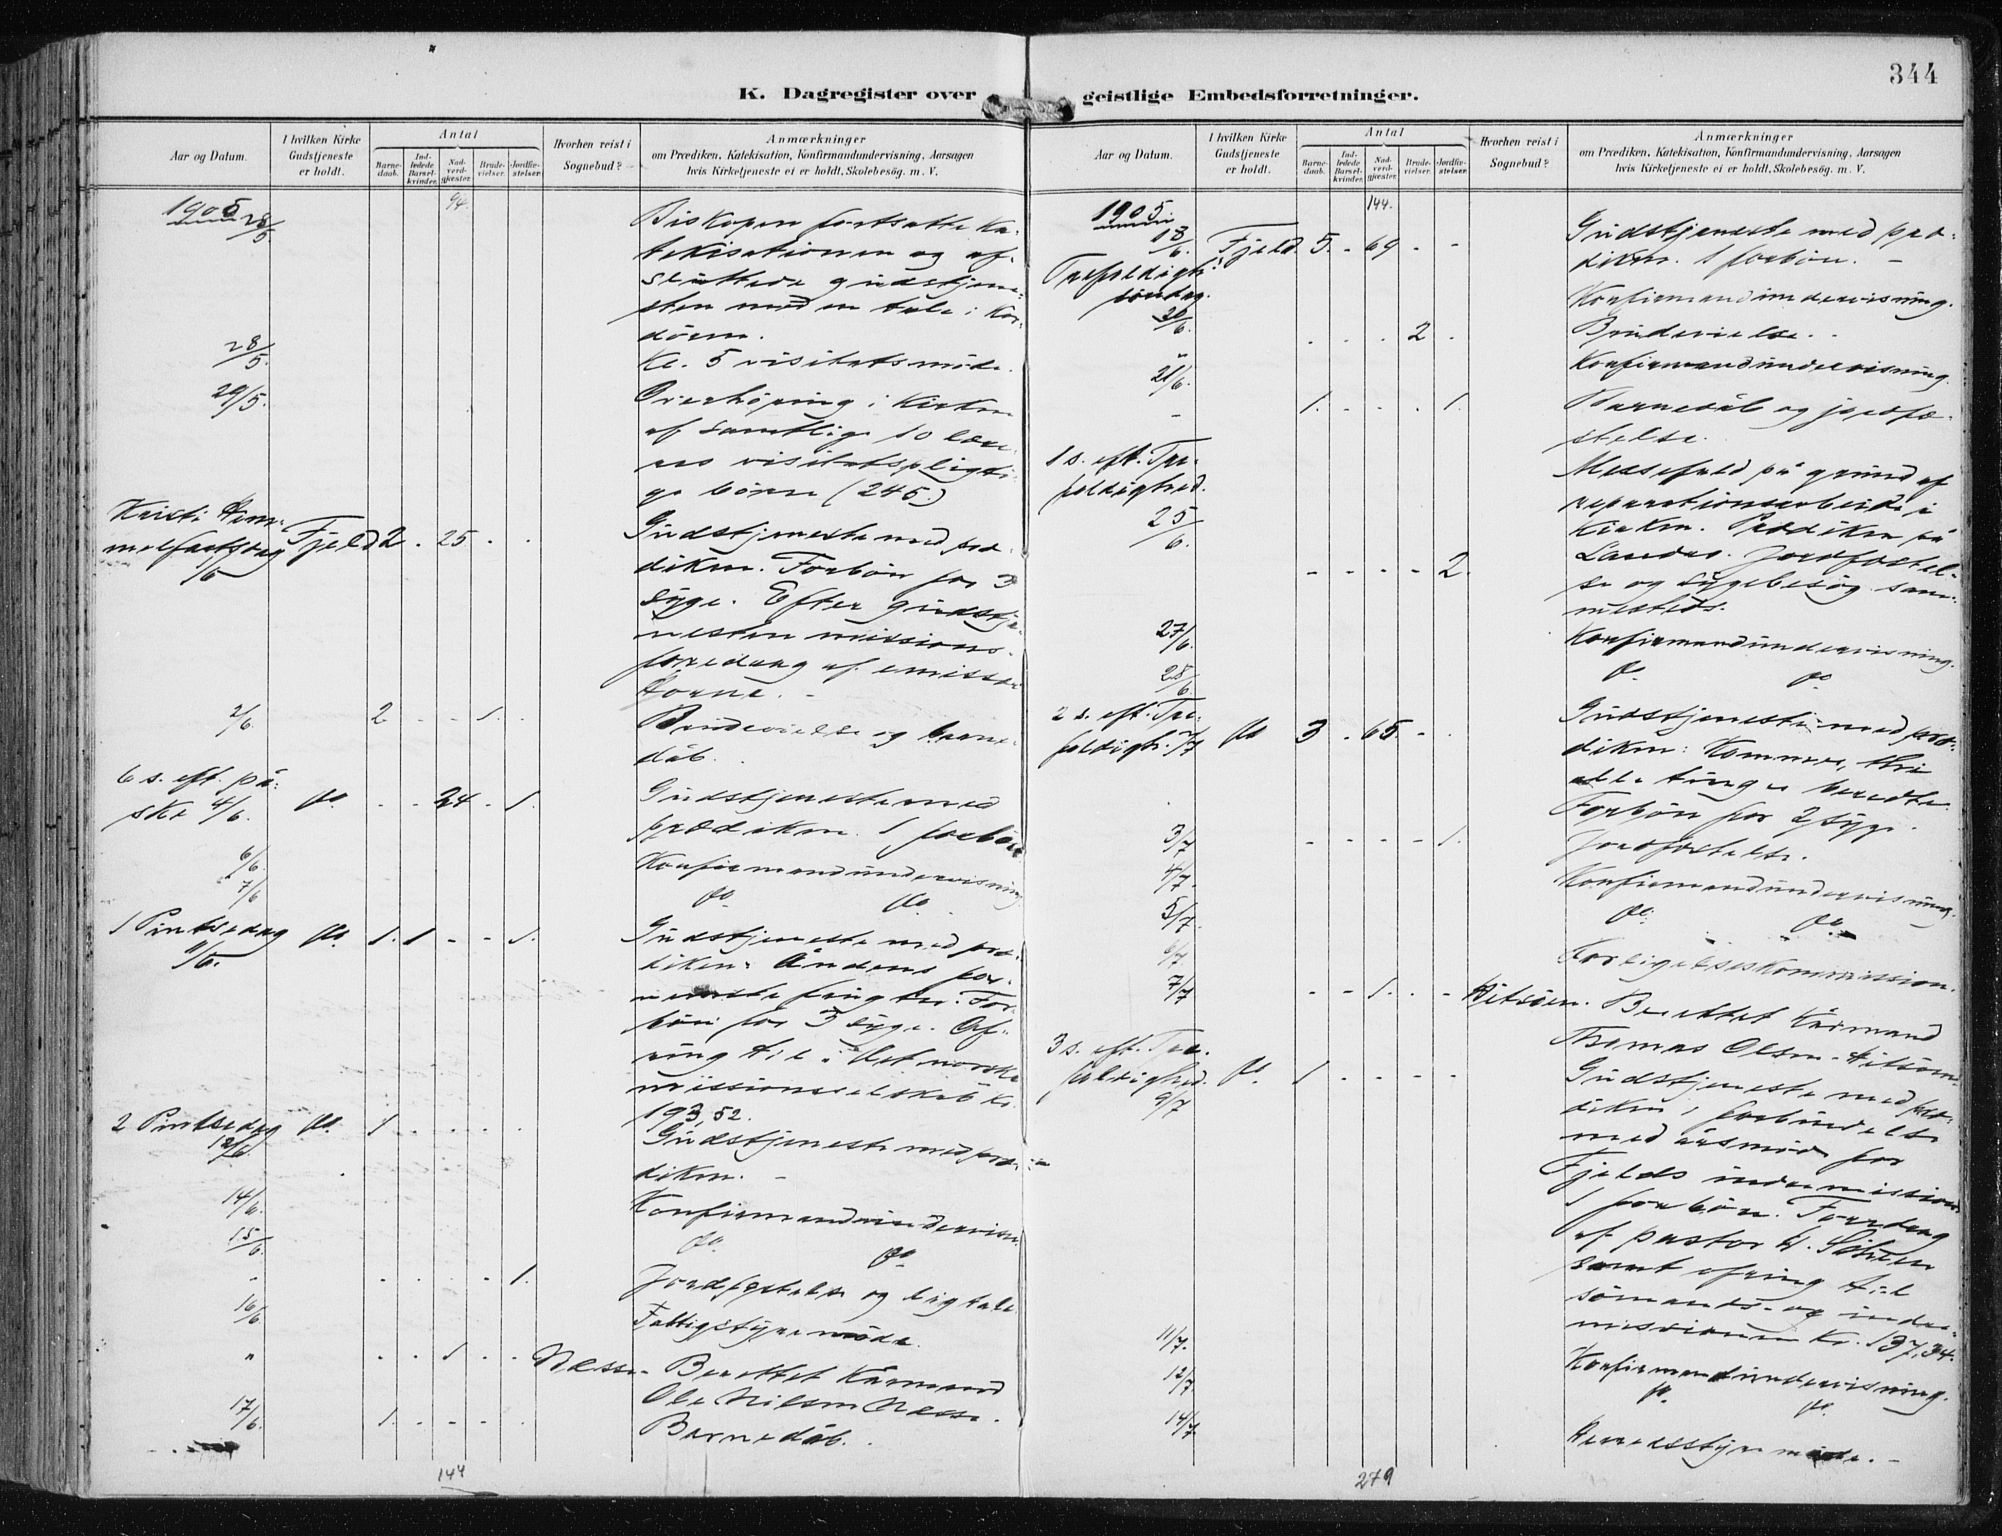 344
K. Dagregister over geistlige Embedsforretninger.
Aar og Datum.
I hvilken Kirke Gudstjeneste er holdt.
Antal
Barnedaab.
Indledede Barselkvinder.
Nadverdgjæster.
Brudevielser.
Jordfæstelser.
Hvorhen reist i Sognebud?
Anmærkninger
om Prædiken, Katekisation, Konfirmandundervisning, Aarsagen
hvis Kirketjeneste ei er holdt, Skolebesøg. m. V.
1905 94.
28/5 Biskopen fortsatte ka-
tekisationen og af-
sluttede gudstjene-
sten med en tale i kor-
døren.
28/5. Kl. 5 visitatsmøde.
29/5. Overhøring i kirken
af samtlige 10 læse-
res visitatspligti-
ge børn (245.)
Kristi Him- Fjeld 2 . 25 . . Gudstjeneste med præ-
melfartsdag diken. Forbøn for 3
1/6 syge. Efter gudstje-
nesten missions-
foredrag af emissæ-
rerne. -
2/6. 2 . . 1. . Brudevielse og barne-
dåb.
6 s. eft. på- do. . . 24 . 1. Gudstjeneste med
ske 4/6. prædiken. 1 forbøn
6/6. Konfirmandundervisning
7/6 do. do.
1 Pintsedag do. 1. 1 - - 1. Gudstjeneste med præ-
11/6. diken: Åndens for-
nemste frugter. For-
bøn for 3 syge. Of-
ring til Det norske
missionsselskab kr.
193,52.
2 Pintsedag do. 1 . . . . Gudstjeneste med præ-
12/6. diken. -
14/6. Konfirmandundervisn.
15/6. do. do.
- . . . . 1. Jordfæstelse og ligtale
16/6 Fattigstyremøde.
" . . 1 . . Næsse. Berettet Kårmand
Ole Nilsen Næsse.
17/6. 1. . . . . Barnedåb.
144
Aar og Datum.
I hvilken Kirke Gudstjeneste er holdt.
Antal
Barnedaab.
Indledede Barselkvinder.
Nadverdgjæster.
Brudevielser.
Jordfæstelser.
Hvorhen reist i Sognebud?
Anmærkninger
om Prædiken, Katekisation, Konfirmandundervisning, Aarsagen
hvis Kirketjeneste ei er holdt, Skolebesøg. m. V.
1905 144.
18/6. Fjeld. 5. - 69 - - Gudstjeneste med præ-
Trefoldigh. diken. 1 forbøn. -
søndag. Konfirmandundervisning.
20/6. . . . 2 . Brudevielse. -
21/6. Konfirmandundervisning.
- 1. - - . 1. Barnedåb og jordfæ-
stelse.
1 s. eft. Tre- Messefald på grund af
foldighed. reparationsarbeide i
25/6. kirken. Prædiken på
- - - - 2. Landro. Jordfæstel-
se og sygebesøg sam-
mesteds.
27/6. Konfirmandundervisning.
28/6. do. do
2 s. eft. Tre- do 3 . 65 - . Gudstjeneste med præ-
foldigh. 2/7 diken: Kommer, thi
alle ting er beredte.
Forbøn for 2 syge.
3/7 - - - - 1. Jordfæstelse.
4/7. Konfirmandundervisning.
5/7. do. do.
6/7 Forligelseskommission.
7/7 - - 1. . - Bitsøen. Berettet Kårmand
Thomas Olsen Bitsøen.
3 s. eft. Tre- do. 1 - - - - Gudstjeneste med præ-
foldighed. diken, i forbindelse
9/7 med årsmøde for
Fjelds indremission
1 forbøn. Foredrag
af pastor
samt ofring til
sømands- og indre-
missionen kr. 137,34.
11/7. Konfirmandundervisning.
12/7. do. do.
14/7. Herredsstyremøde. -
279